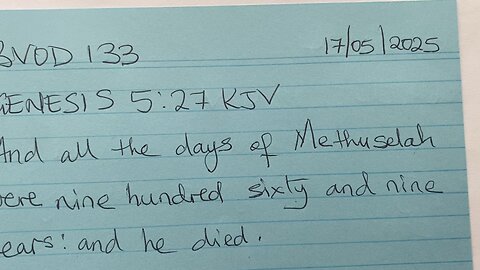 BVOD 133 17/05/2025
GENESIS 5:27 KJV
And all the days of Methuselah
were nine hundred sixty and nine
years: and he died.